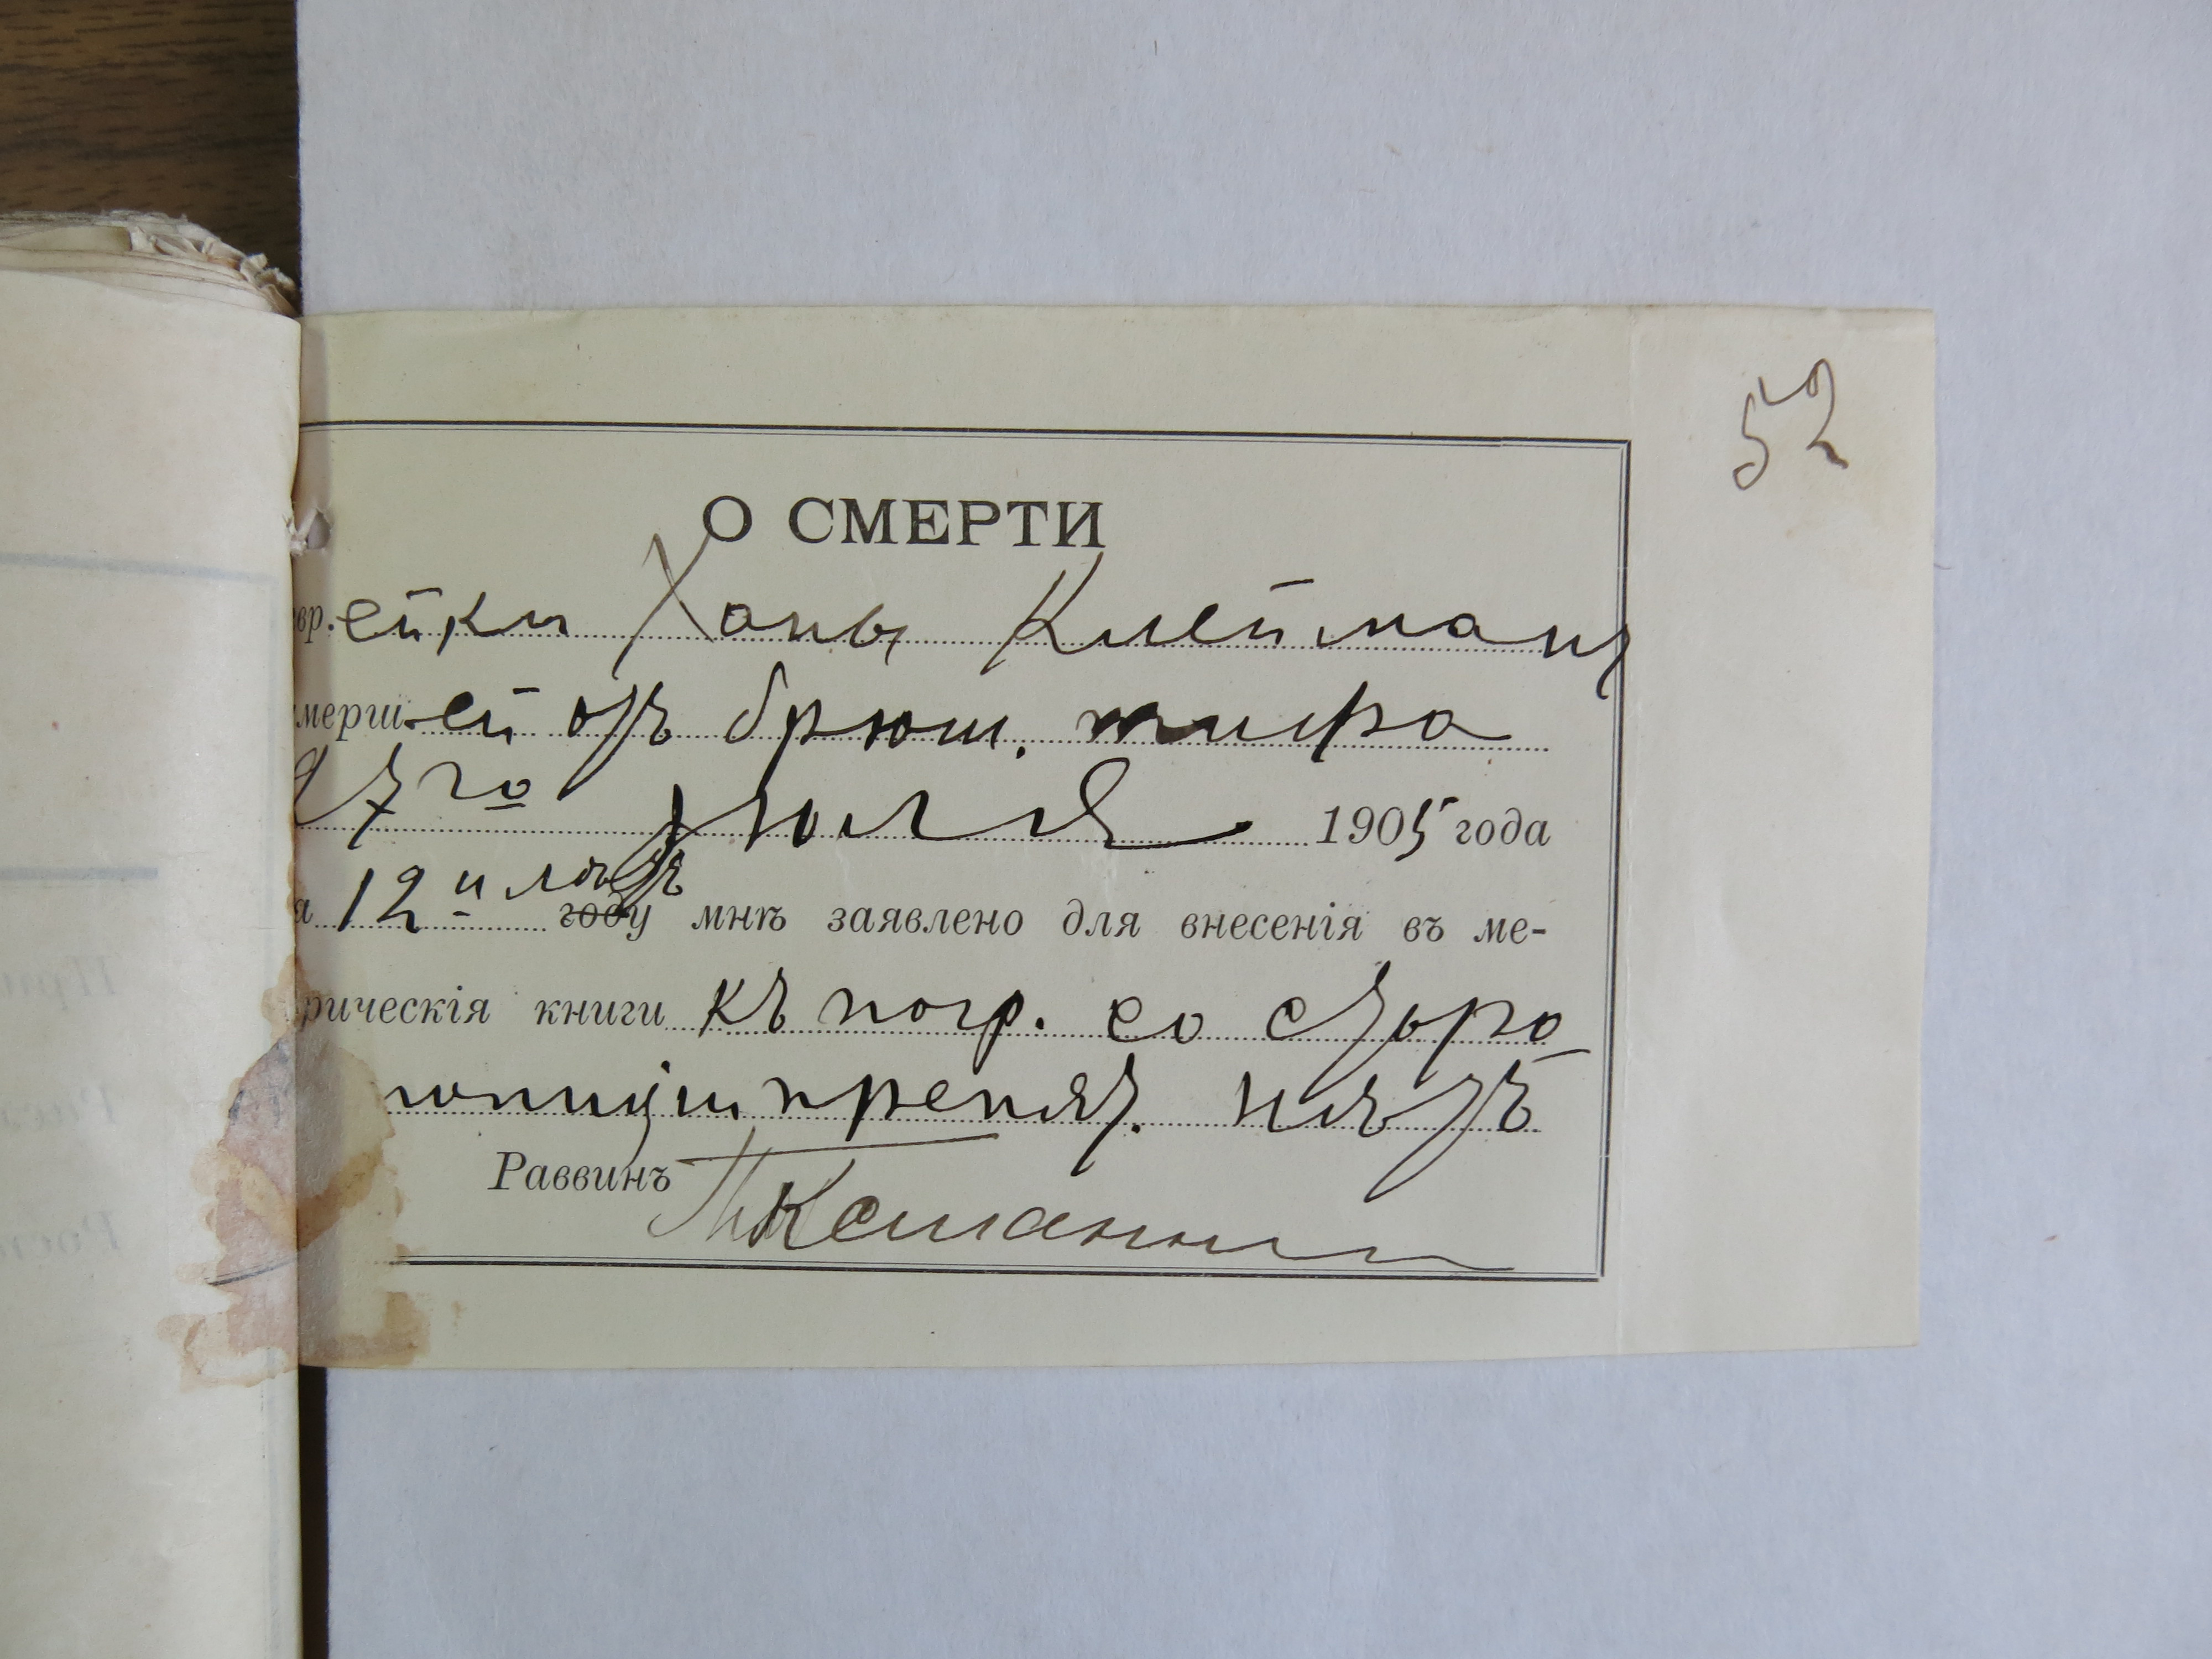 52
О СМЕРТИ
евр. ейки Ханы Клейманъ
умерш. ей отъ брюш. тифа
27го Іюля 1905 года
на 12 и лѣтъ году мнѣ заявлено для внесенія въ ме-
рическія книги къ погр. со сторо
полиціи препят. нѣтъ
Раввинъ